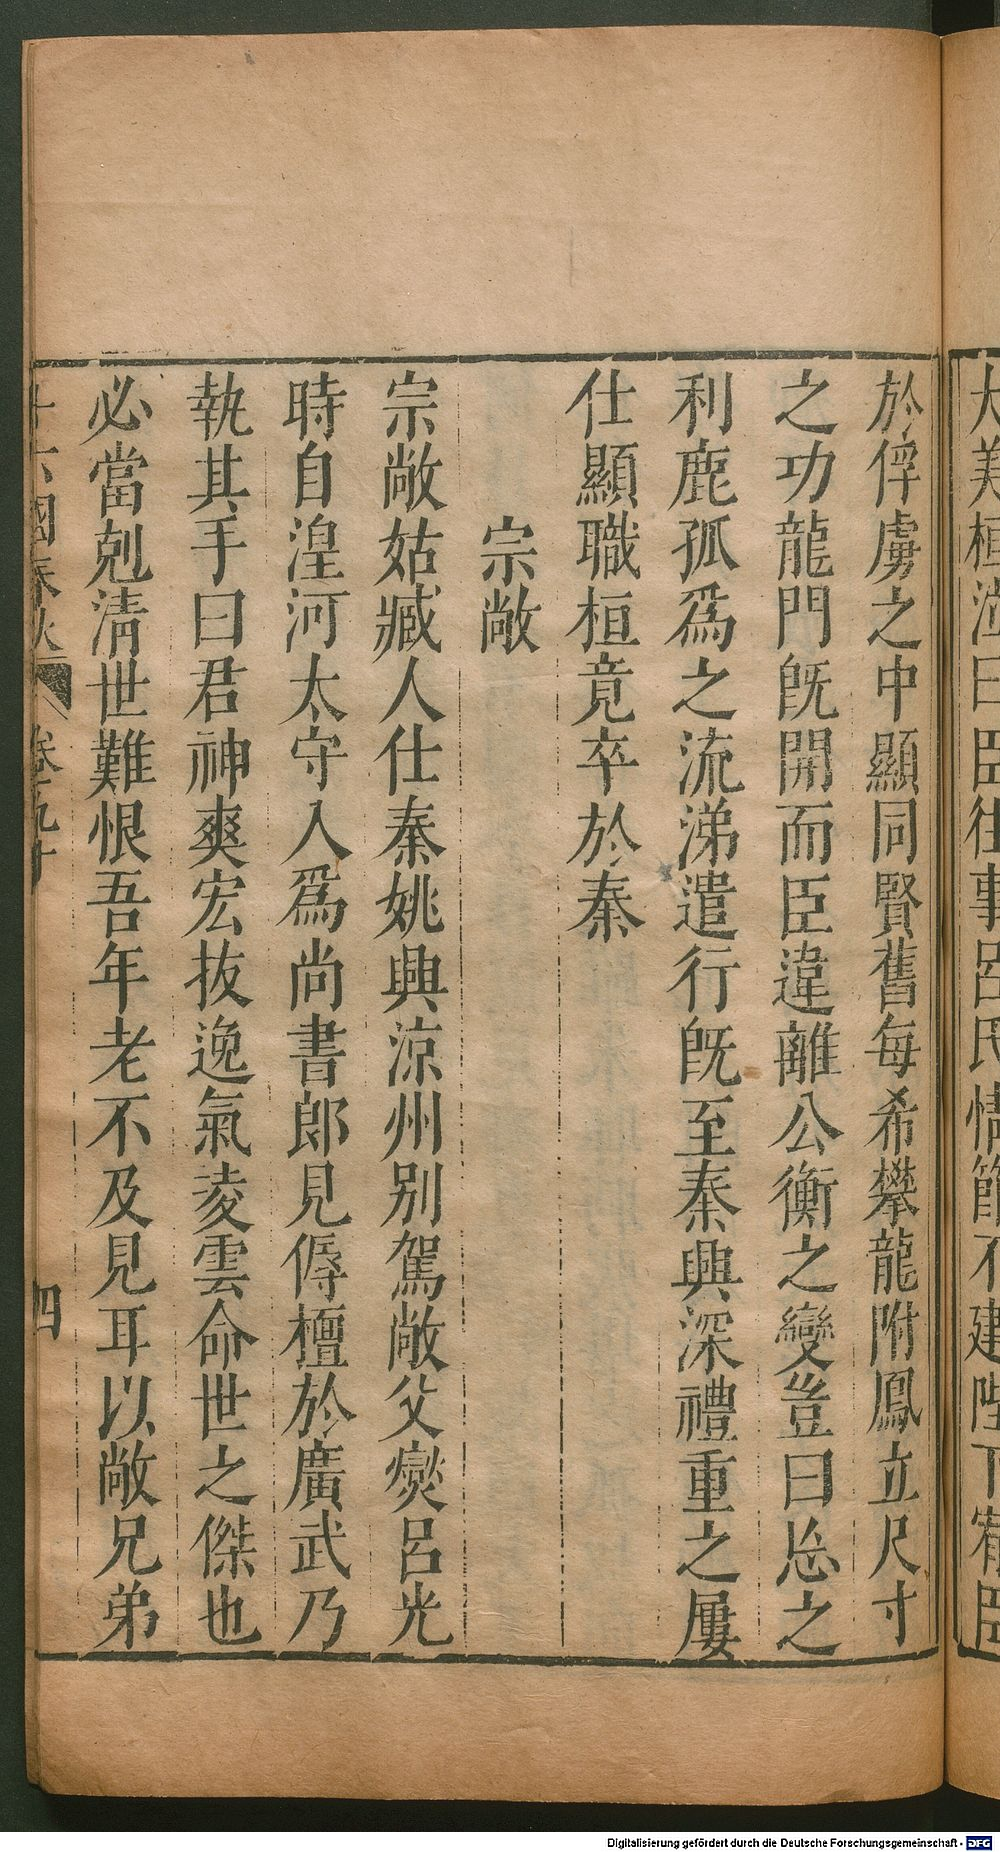 大美桓泣曰臣往事呂氏情節不建陛下宥臣
於俘虜之中顯同賢舊每希攀龍附鳳立尺寸
之功龍門既開而臣違離公衡之變豈曰忘之
利鹿孤爲之流涕遣行既至秦興深禮重之屢
仕顯職桓竟卒於秦
宗敞
宗敞姑臧人仕秦姚興涼州别駕敞父爕呂光
時自湟河太守入爲尚書郎見傉檀於廣武乃
執其手曰君神爽宏抜逸氣凌雲命世之傑也
必當剋清世難恨吾年老不及見耳以敞兄弟
十六國春秋 卷 九十 四
Digitalisierung gefördert durch die Deutsche Forschungsgemeinschaft - DFG